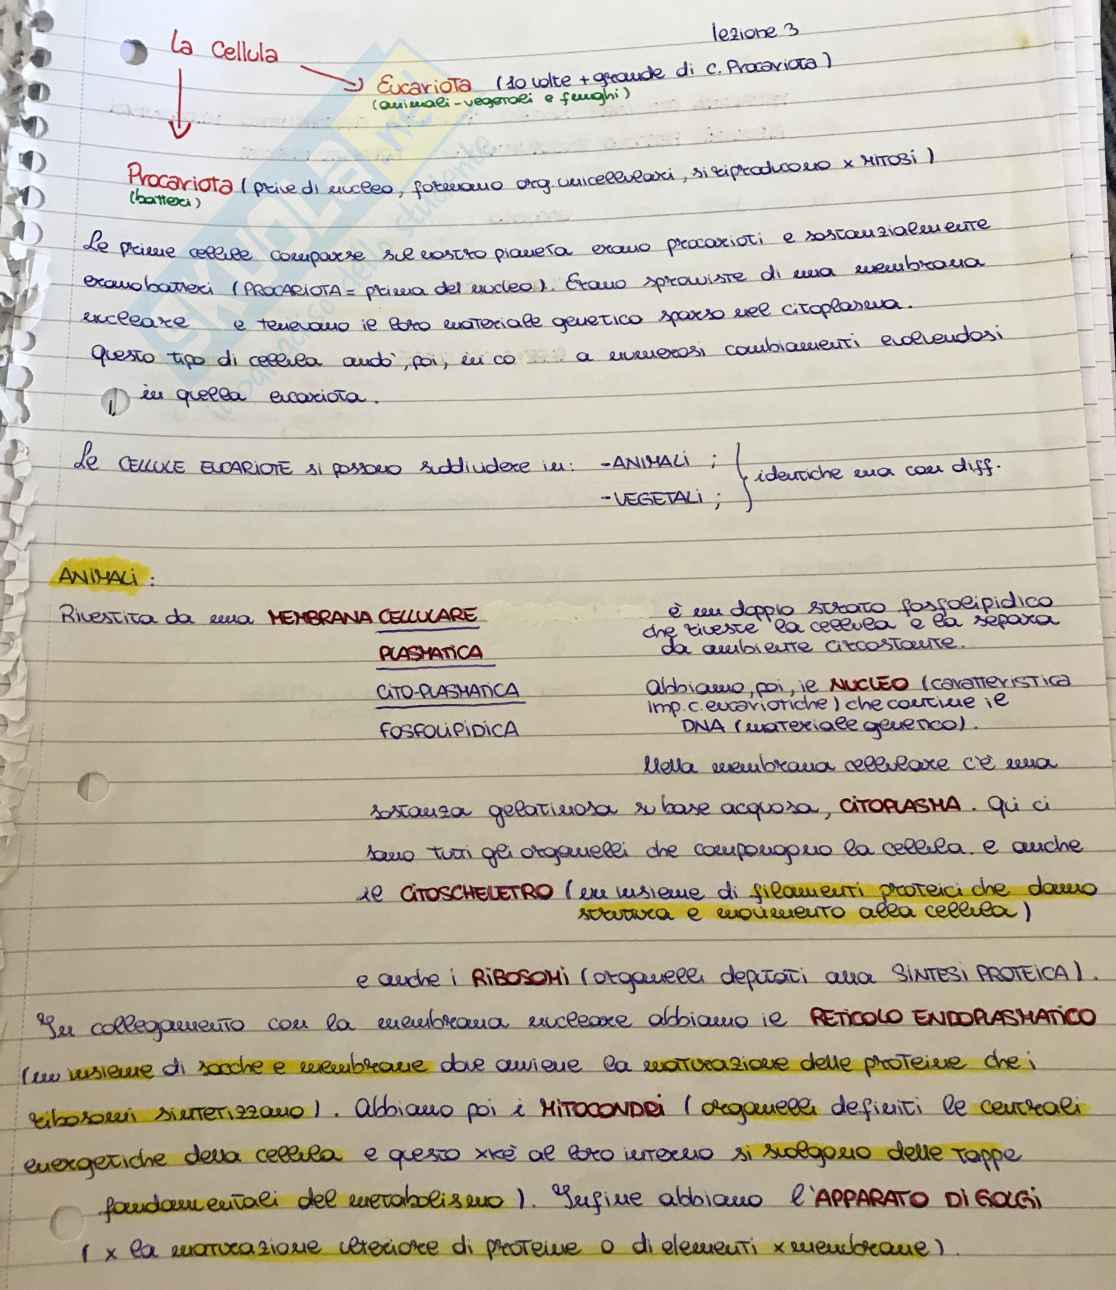 lezione 3
La Cellula
Eucariota (10 volte + grande di c. Procariota)
(animali - vegetali e funghi)
Procariota (prive di nucleo, formano org. unicellulari, si riproducono x MITOSI)
(batteri)
Le prime cellule comparse sul nostro pianeta erano procarioti e sostanzialmente
erano batteri (PROCARIOTA = prima del nucleo). Erano sprovviste di una membrana
nucleare e tenevano il loro materiale genetico sparso nel citoplasma.
Questo tipo di cellula andò, poi, in co a numerosi cambiamenti evolvendosi
in quella eucariota.
Le CELLULE EUCARIOTE si possono suddividere in: -ANIMALI ;
-VEGETALI ;
identiche ma con diff.
ANIMALI :
Rivestita da una MEMBRANA CELLULARE è un doppio strato fosfolipidico
che riveste la cellula e la separa
PLASMATICA da ambiente circostante.
CITO-PLASMATICA Abbiamo, poi, il NUCLEO (caratteristica
imp. c. eucariotiche) che contiene il
FOSFOLIPIDICA DNA (materiale genetico).
Nella membrana cellulare c'è una
sostanza gelatinosa su base acquosa, CITOPLASMA. Qui ci
sono tutti gli organelli che compongono la cellula e anche
il CITOSCHELETRO (un insieme di filamenti proteici che danno
struttura e movimento alla cellula)
e anche i RIBOSOMI (organelli deputati alla SINTESI PROTEICA).
In collegamento con la membrana nucleare abbiamo il RETICOLO ENDOPLASMATICO
(un insieme di sacche e membrane dove avviene la maturazione delle proteine che i
ribosomi sintetizzano). Abbiamo poi i MITOCONDRI (organelli definiti le centrali
energetiche della cellula e questo xkè al loro interno si svolgono delle tappe
fondamentali del metabolismo). Infine abbiamo l'APPARATO DI GOLGI
( x la maturazione ulteriore di proteine o di elementi x membrane).
SKUOLA.net